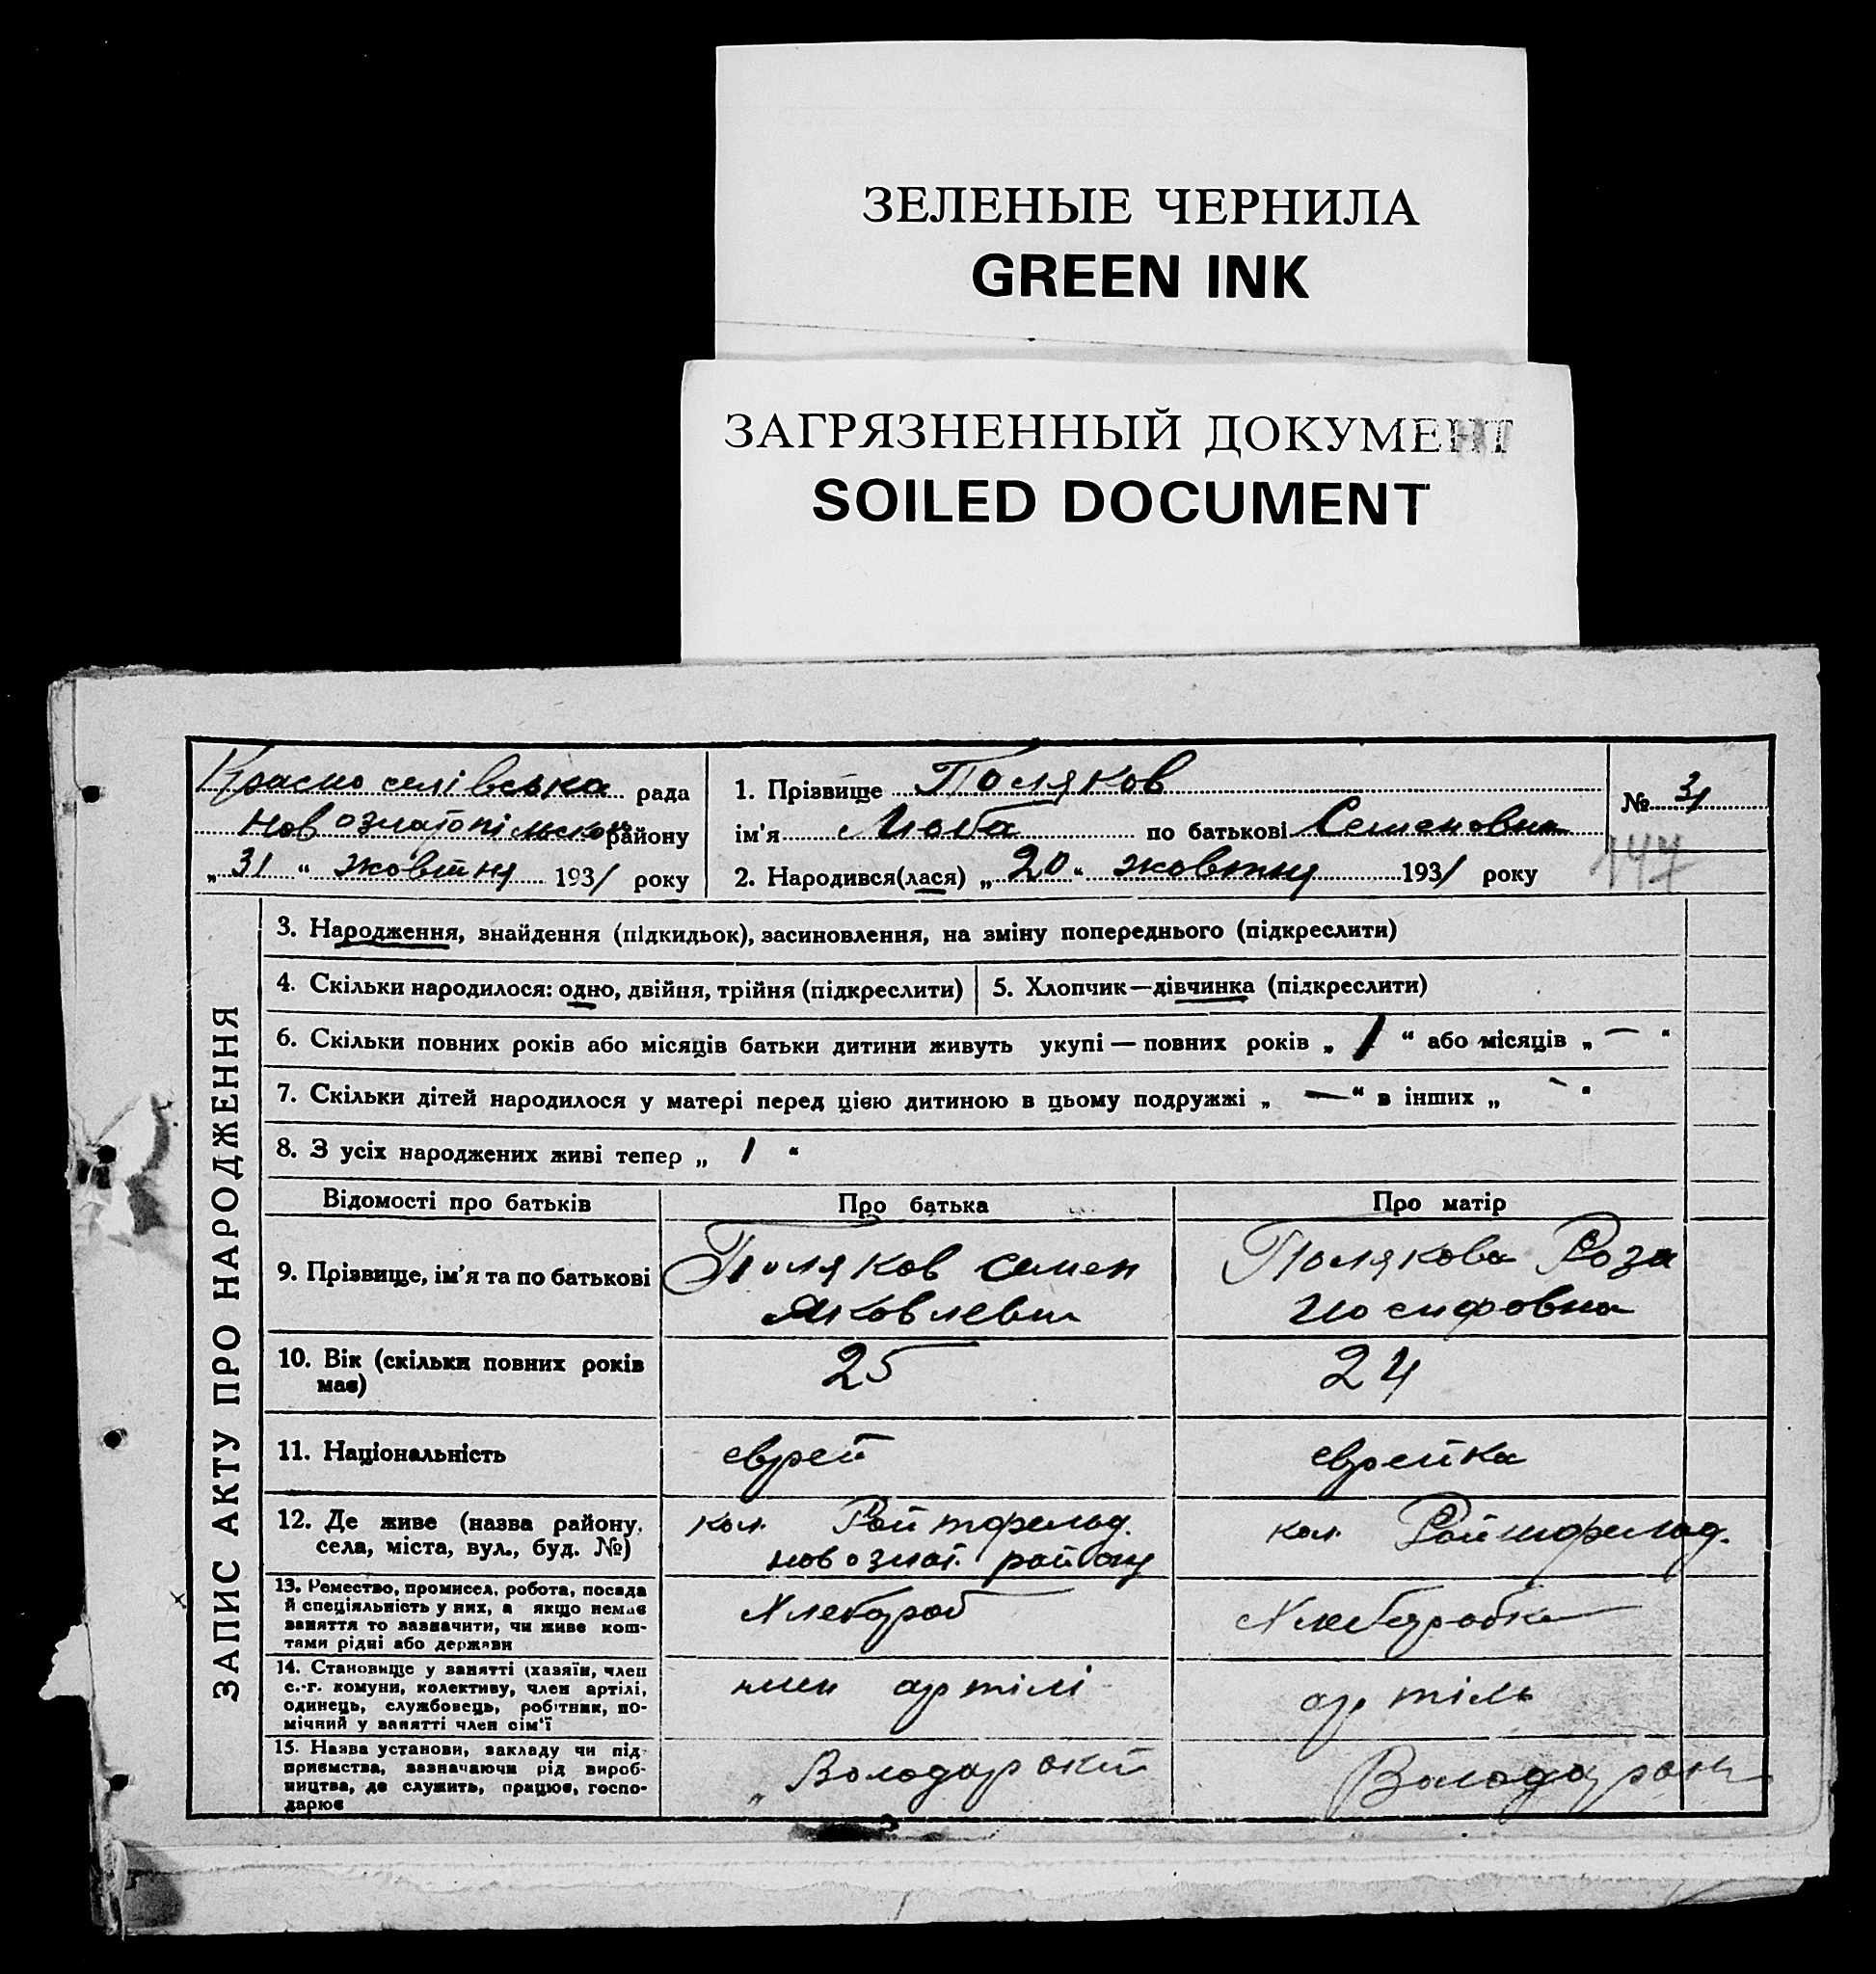 ЗЕЛЕНЫЕ ЧЕРНИЛА
GREEN INK
ЗАГРЯЗНЕННЫЙ ДОКУМЕНТ
SOILED DOCUMENT
Красноселівська рада
Новозлатопільськой району
„31“ жовтня 1931 року
1. Прізвище Поляков
ім'я Люба по батькові Семеновна
2. Народився(лася) „20“ жовтня 1931 року
№ 31
147
ЗАПИС АКТУ ПРО НАРОДЖЕННЯ
3. Народження, знайдення (підкидьок), засиновлення, на зміну попереднього (підкреслити)
4. Скільки народилося: одно, двійня, трійня (підкреслити)
5. Хлопчик—дівчинка (підкреслити)
6. Скільки повних років або місяців батьки дитини живуть укупі — повних років „ 1 “ або місяців „ — “
7. Скільки дітей народилося у матері перед цією дитиною в цьому подружжі „ — “ в інших „ - “
8. З усіх народжених живі тепер „ 1 “
Відомості про батьків
Про батька
Про матір
9. Прізвище, ім'я та по батькові
Поляков Семен
Яковлевич
Полякова Роза
Иосифовна
10. Вік (скільки повних років
має)
25
24
11. Національність
єврей
єврейка
12. Де живе (назва району,
села, міста, вул., буд. №)
кол. Ройтфельд.
новозлат. району
кол. Ройтфельд.
13. Ремество, промисел, робота, посада
й спеціяльність у них, а якщо немає
заняття то зазначити, чи живе кош-
тами рідні або держави
Хлебороб
Хлеборобка
14. Становище у занятті (хазяїн, член
с.-г. комуни, колективу, член артілі,
одинець, службовець, робітник, по-
мічний у занятті член сім'ї
член артілі
артіль
15. Назва установи, закладу чи під-
приємства, зазначаючи рід вироб-
ництва, де служить, працює, госпо-
дарює
„ Володарский